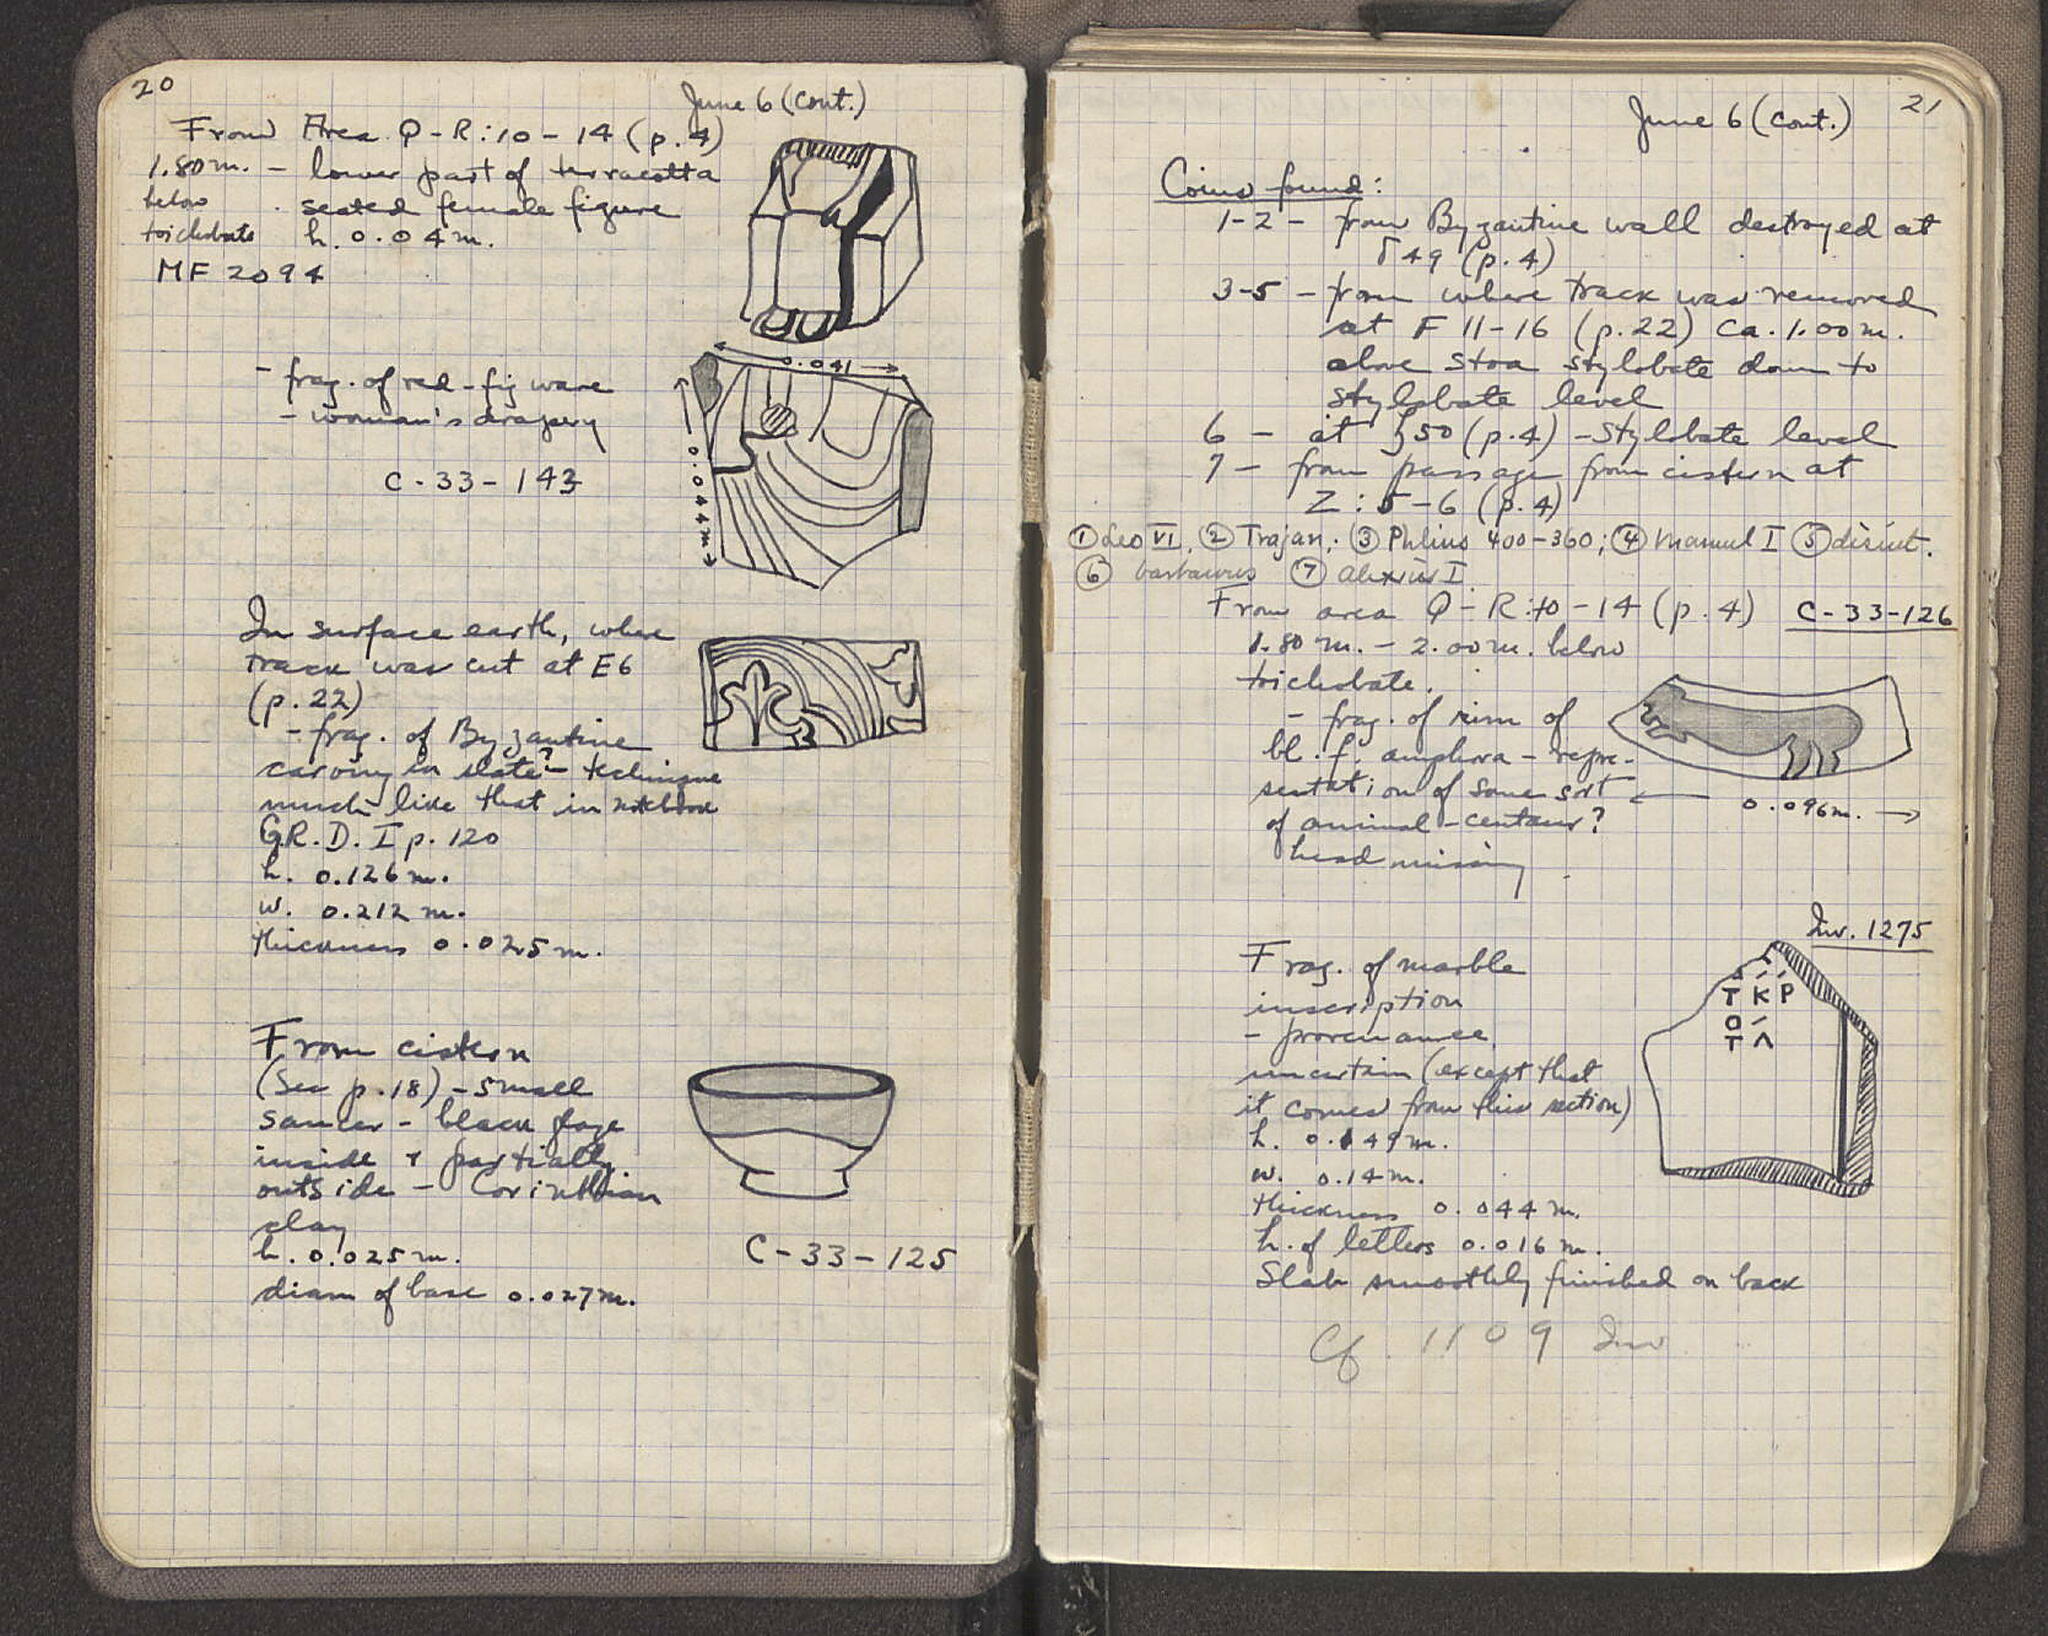 20
June 6 (cont.)
From Area Q-R:10-14 (p.4)
1.80m. - lower part of terracotta
below seated female figure
toichobate h. 0.04m.
MF 2094
0.041
- frag. of red-fig ware
- woman's drapery
0.044m
C-33-143
In surface earth, where
track was cut at E6
(p.22)
- frag. of Byzantine
carving in slate? - technique
much like that in notebook
G.R.D. I p. 120
h. 0.126m.
w. 0.212m.
thickness 0.025m.
From cistern
(See p.18) - small
saucer - black glaze
inside & partially
outside - Corinthian
clay
h. 0.025m.
C-33-125
diam of base 0.027m.
21
June 6 (cont.)
Coins found:
1-2 - from Byzantine wall destroyed at
49 (p.4)
3-5 - from where track was removed
at F 11-16 (p.22) ca. 1.00m.
above Stoa stylobate down to
stylobate level
6 - at 50 (p.4) - stylobate level
7 - from passage from cistern at
Z:5-6 (p.4)
① Leo VI. ② Trajan; ③ Phlius 400-360; ④ Manuel I ⑤ disint.
⑥ barbarous ⑦ Alexius I
From area Q-R:10-14 (p.4) C-33-126
1.80m. - 2.00m. below
toichobate.
- frag. of rim of
bl. f. amphora - repre-
sentation of some sort
0.096m.
of animal - centaur?
head missing
Inv. 1275
Frag. of marble
inscription
- provenance
uncertain (except that
it comes from this section)
Τ Κ Ρ
Ο
Τ Λ
h. 0.149m.
w. 0.14m.
thickness 0.044m.
h. of letters 0.016m.
Slab smoothly finished on back
Cf. 1109 Inv